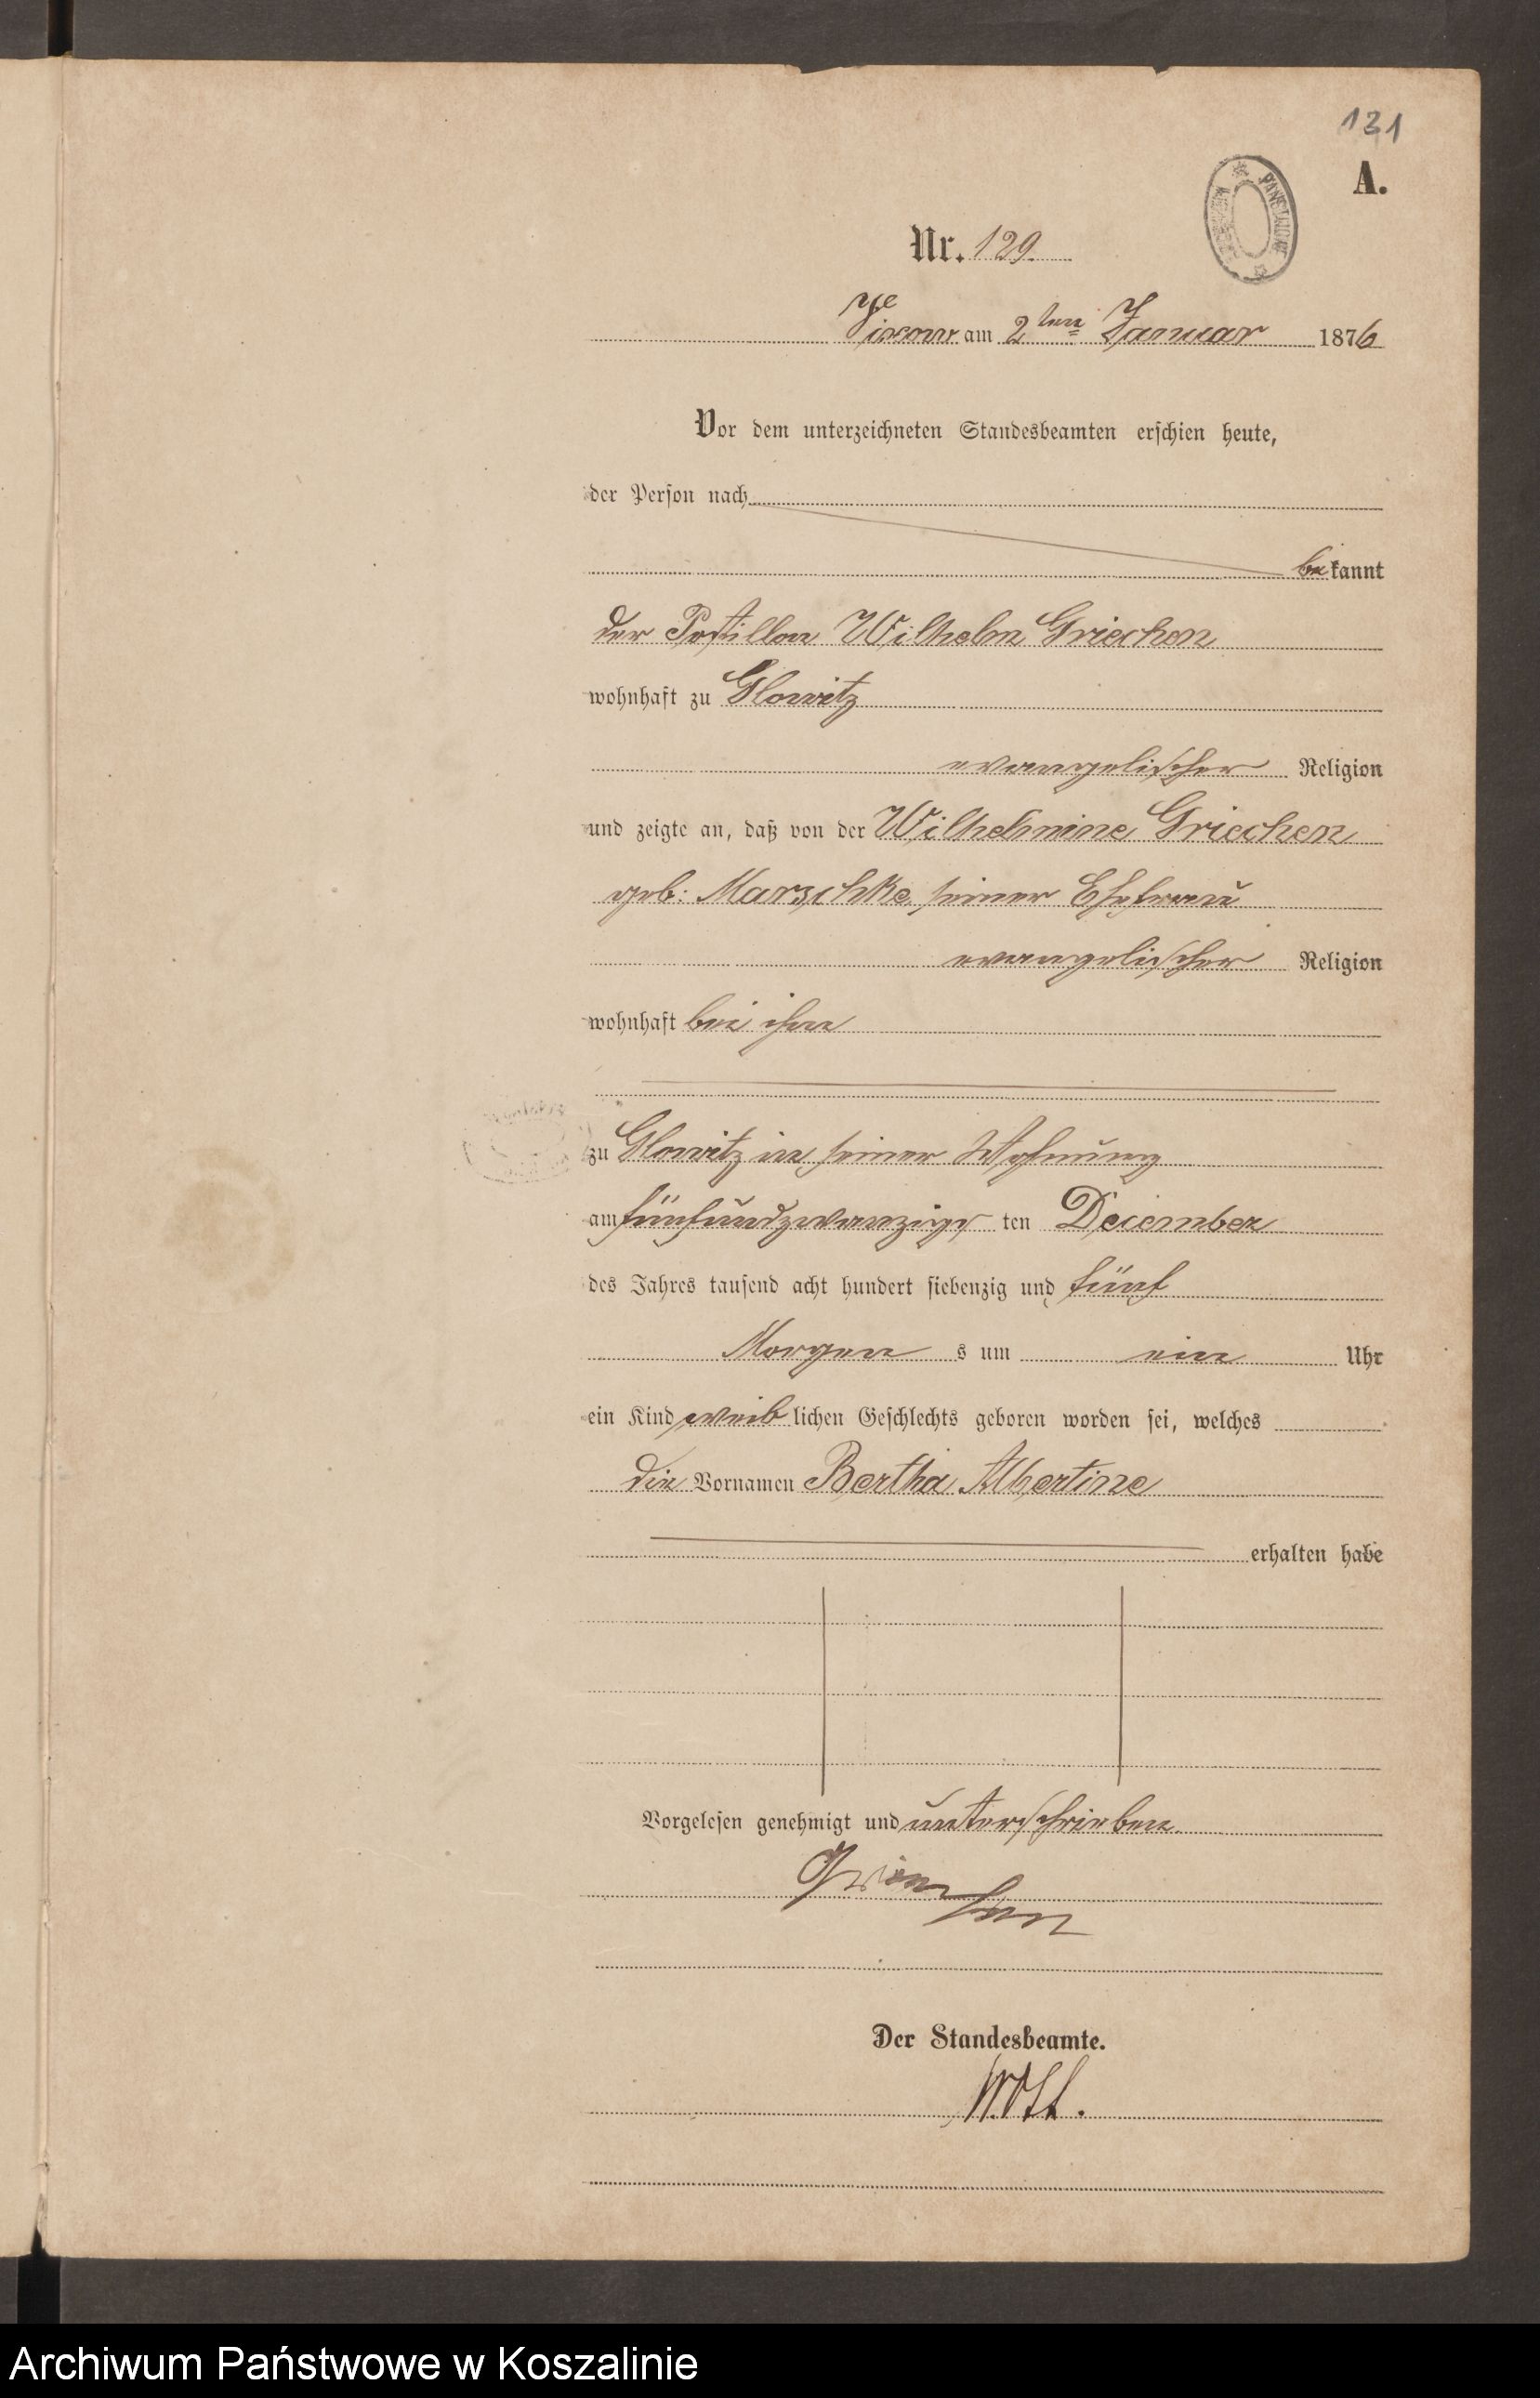 131
A.
Nr. 129.
am 2ten Januar 1876
Vor dem unterzeichneten Standesbeamten erschien heute,
der Person nach
bekannt
der Postillon Wilhelm Griechen
wohnhaft zu Glowitz
evangelischer Religion
und zeigte an, daß von der Wilhelmine Griechen
geb: Marzschke seiner Ehefrau
evangelischer Religion
wohnhaft bei ihm
zu Glowitz in seiner Wohnung
am fünfundzwanzigs ten December
des Jahres tausend acht hundert siebenzig und fünf
Morgen s um ein Uhr
ein Kind weib lichen Geschlechts geboren worden sei, welches
die Vornamen Bertha Albertine
erhalten habe
Vorgelesen genehmigt und unterschrieben
Griechen
Der Standesbeamte.
Archiwum Państwowe w Koszalinie